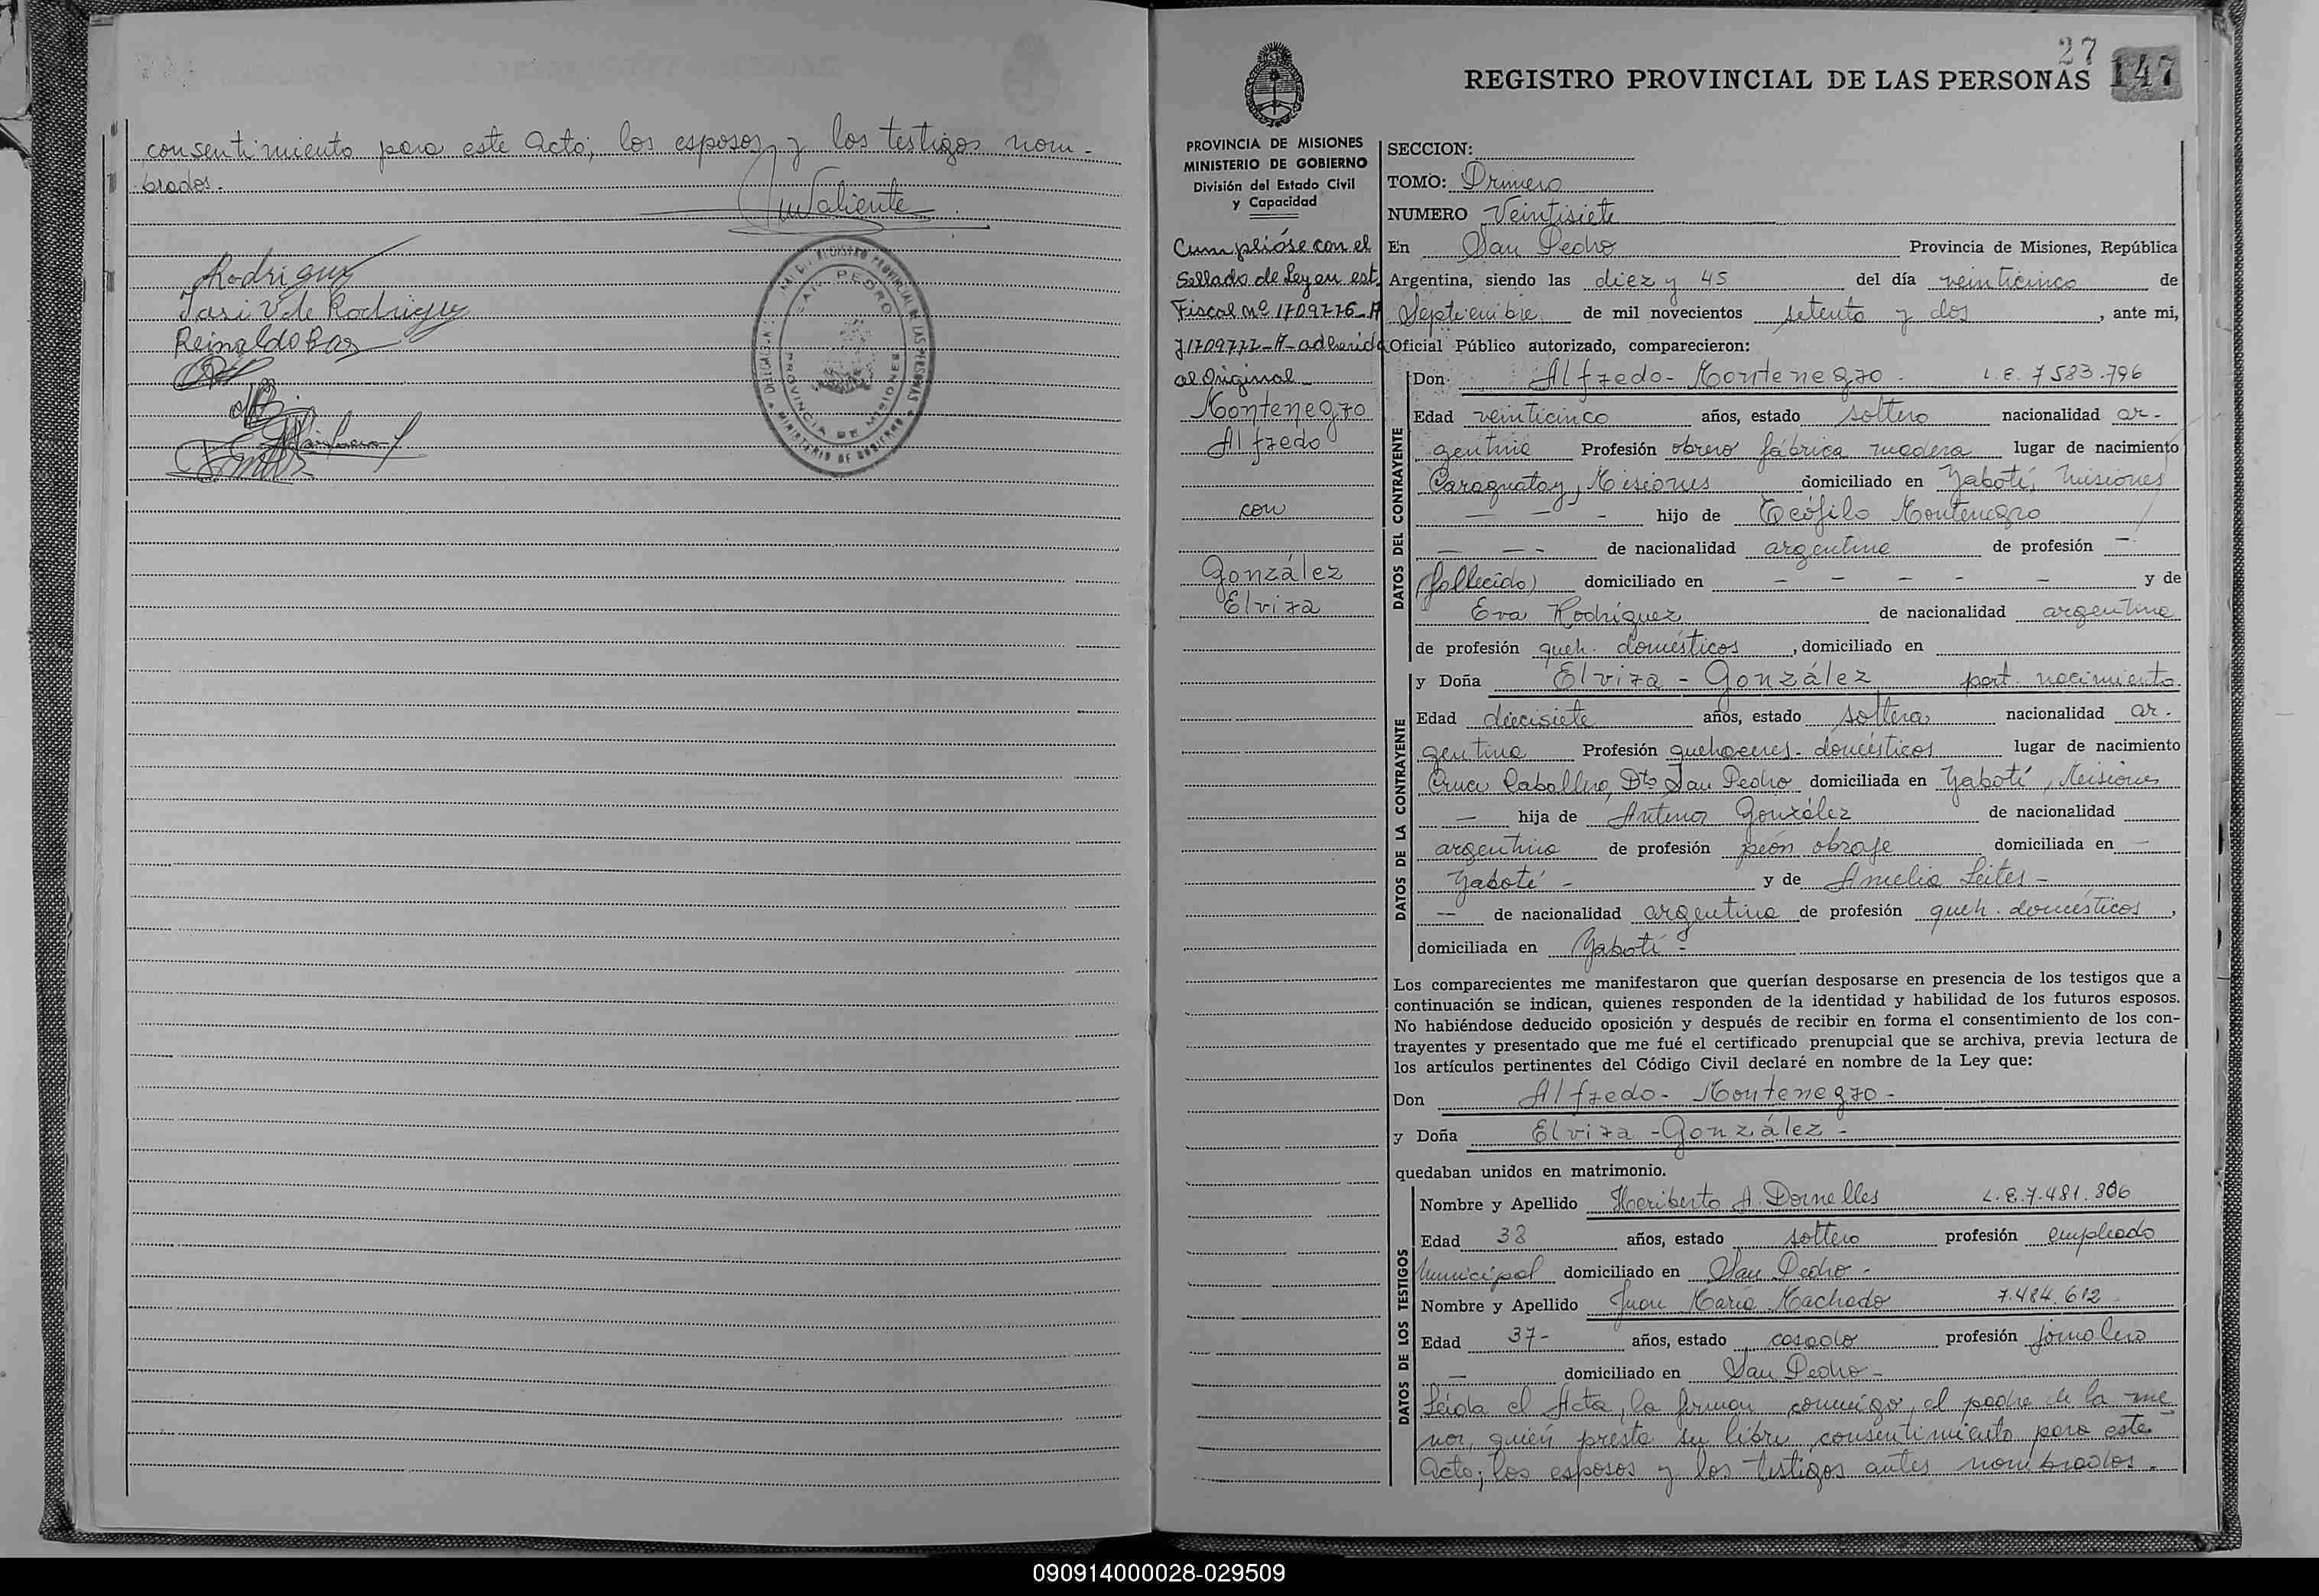 consentimiento para este Acto; los esposos y los testigos nom-
brados.-
Rodriguez
V de Rodriguez
Reinaldo
SAN PEDRO
PROVINCIA DE MISIONES
27
147
REGISTRO PROVINCIAL DE LAS PERSONAS
PROVINCIA DE MISIONES
MINISTERIO DE GOBIERNO
División del Estado Civil
y Capacidad
Cumplióse con el
Sellado de Ley en est.
Fiscal nº 1709776-A
y 1709777-A-adherido
al Original-
Montenegro
Alfredo
con
González
Elvira
SECCION:
TOMO: Primero
NUMERO Veintisiete
En San Pedro Provincia de Misiones, República
Argentina, siendo las diez y 45 del día veinticinco de
Septiembre de mil novecientos setenta y dos, ante mi,
Oficial Público autorizado, comparecieron:
DATOS DEL CONTRAYENTE
Don Alfredo- Montenegro- L.E. 7583.796
Edad veinticinco años, estado soltero nacionalidad ar-
gentina Profesión obrero fábrica madera lugar de nacimiento
Caraguatay, Misiones domiciliado en Yabotí, Misiones
— — - hijo de Teófilo Montenegro
— — - de nacionalidad argentina de profesión —
(fallecido) domiciliado en - - - - - y de
Eva Rodríguez de nacionalidad argentina
de profesión queh. domésticos, domiciliado en
DATOS DE LA CONTRAYENTE
y Doña Elvira - González part. nacimiento
Edad diecisiete años, estado soltera nacionalidad ar-
gentina Profesión quehaceres- domésticos lugar de nacimiento
Cruce Caballero, Dto San Pedro domiciliada en Yabotí, Misiones
— hija de Antenor González de nacionalidad
argentina de profesión peón obraje domiciliada en —
Yabotí - y de Amelia Leites -
-- de nacionalidad argentina de profesión queh. domésticos,
domiciliada en Yabotí -
Los comparecientes me manifestaron que querían desposarse en presencia de los testigos que a
continuación se indican, quienes responden de la identidad y habilidad de los futuros esposos.
No habiéndose deducido oposición y después de recibir en forma el consentimiento de los con-
trayentes y presentado que me fué el certificado prenupcial que se archiva, previa lectura de
los artículos pertinentes del Código Civil declaré en nombre de la Ley que:
Don Alfredo- Montenegro-
y Doña Elvira -González -
quedaban unidos en matrimonio.
DATOS DE LOS TESTIGOS
Nombre y Apellido Heriberto A. Dornelles L.E.7.481.806
Edad 38 años, estado soltero profesión empleado
Municipal domiciliado en San Pedro-
Nombre y Apellido Juan María Machado 7.484.612
Edad 37- años, estado casado profesión jornalero
— domiciliado en San Pedro-
Leída el Acta, la firman conmigo, el padre de la me
nor, quién presta su libre consentimiento para este
Acto; los esposos y los testigos antes nombrados.-
090914000028-029509